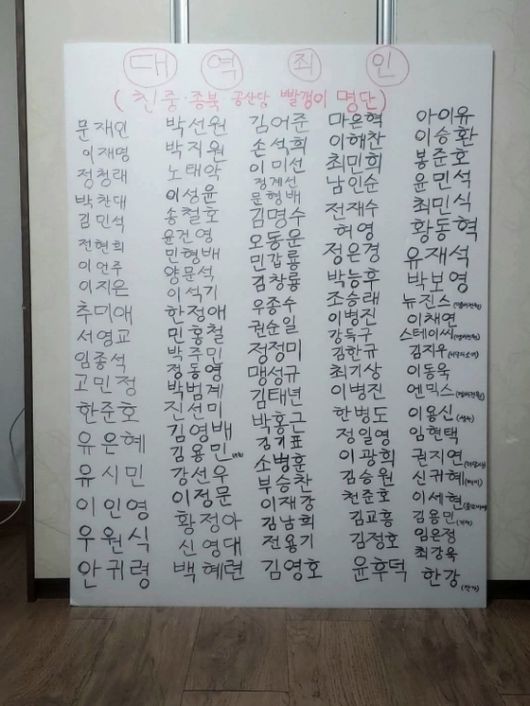 대역죄인
(친중·종북 공산당 빨갱이 명단)
문재인
이재명
정청래
박찬대
김민석
전현희
이언주
이지은
추미애
서영교
임종석
고민정
한준호
유은혜
유시민
이인영
우원식
안귀령
박선원
박지원
노태악
이성윤
송철호
윤건영
민형배
양문석
이석기
한정애
민홍철
박주민
정동영
박범계
진선미
김영배
김용민
강선우
이정문
황정아
신영대
백혜련
김어준
손석희
이미선
정계선
문형배
김명수
오동운
민갑룡
김창룡
우종수
권순일
정정미
맹성규
김태년
박홍근
김기표
소병훈
부승찬
이재강
김남희
전용기
김영호
마은혁
이해찬
최민희
남인순
전재수
허영
정은경
박능후
조승래
이병진
강득구
김한규
최기상
이병진
한병도
정일영
이광희
김승원
천준호
김교흥
김정호
윤후덕
아이유
이승환
봉준호
윤민석
최민식
황동혁
유재석
박보영
뉴진스
이채연
스테이씨
김지우
이동욱
엔믹스
이용신
임현택
권지연
신귀혜
이세현
김용민
임은정
최강욱
한강 (작가)